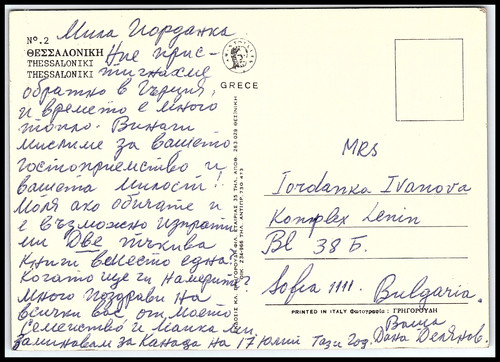 Nº.2
ΘΕΣΣΑΛΟΝΙΚΗ
THESSALONIKI
THESSALONIKI
GRECE
Мила Йорданка
Ние прис-
тигнахме
обратно в Гърция,
и времето е много
топло. Винаги
мислиме за вашето
гостоприемство и
вашета милост!
Моля ако обичате и
е възможно изпрати
ми Две такива
книги вместо една
когато ще ги намерите?
Много поздрави на
всички вас, от моето
семейство и майка ми.
Заминавам за Канада на 17 Юлий Тази год.
MRS
Iordanka Ivanova
Komplex Lenin
Bl 38 Б.
Sofia 1111. Bulgaria.
PRINTED IN ITALY Φωτογραφία : ΓΡΗΓΟΡΙΑΔΗ
Ваша
Дана Делянов.